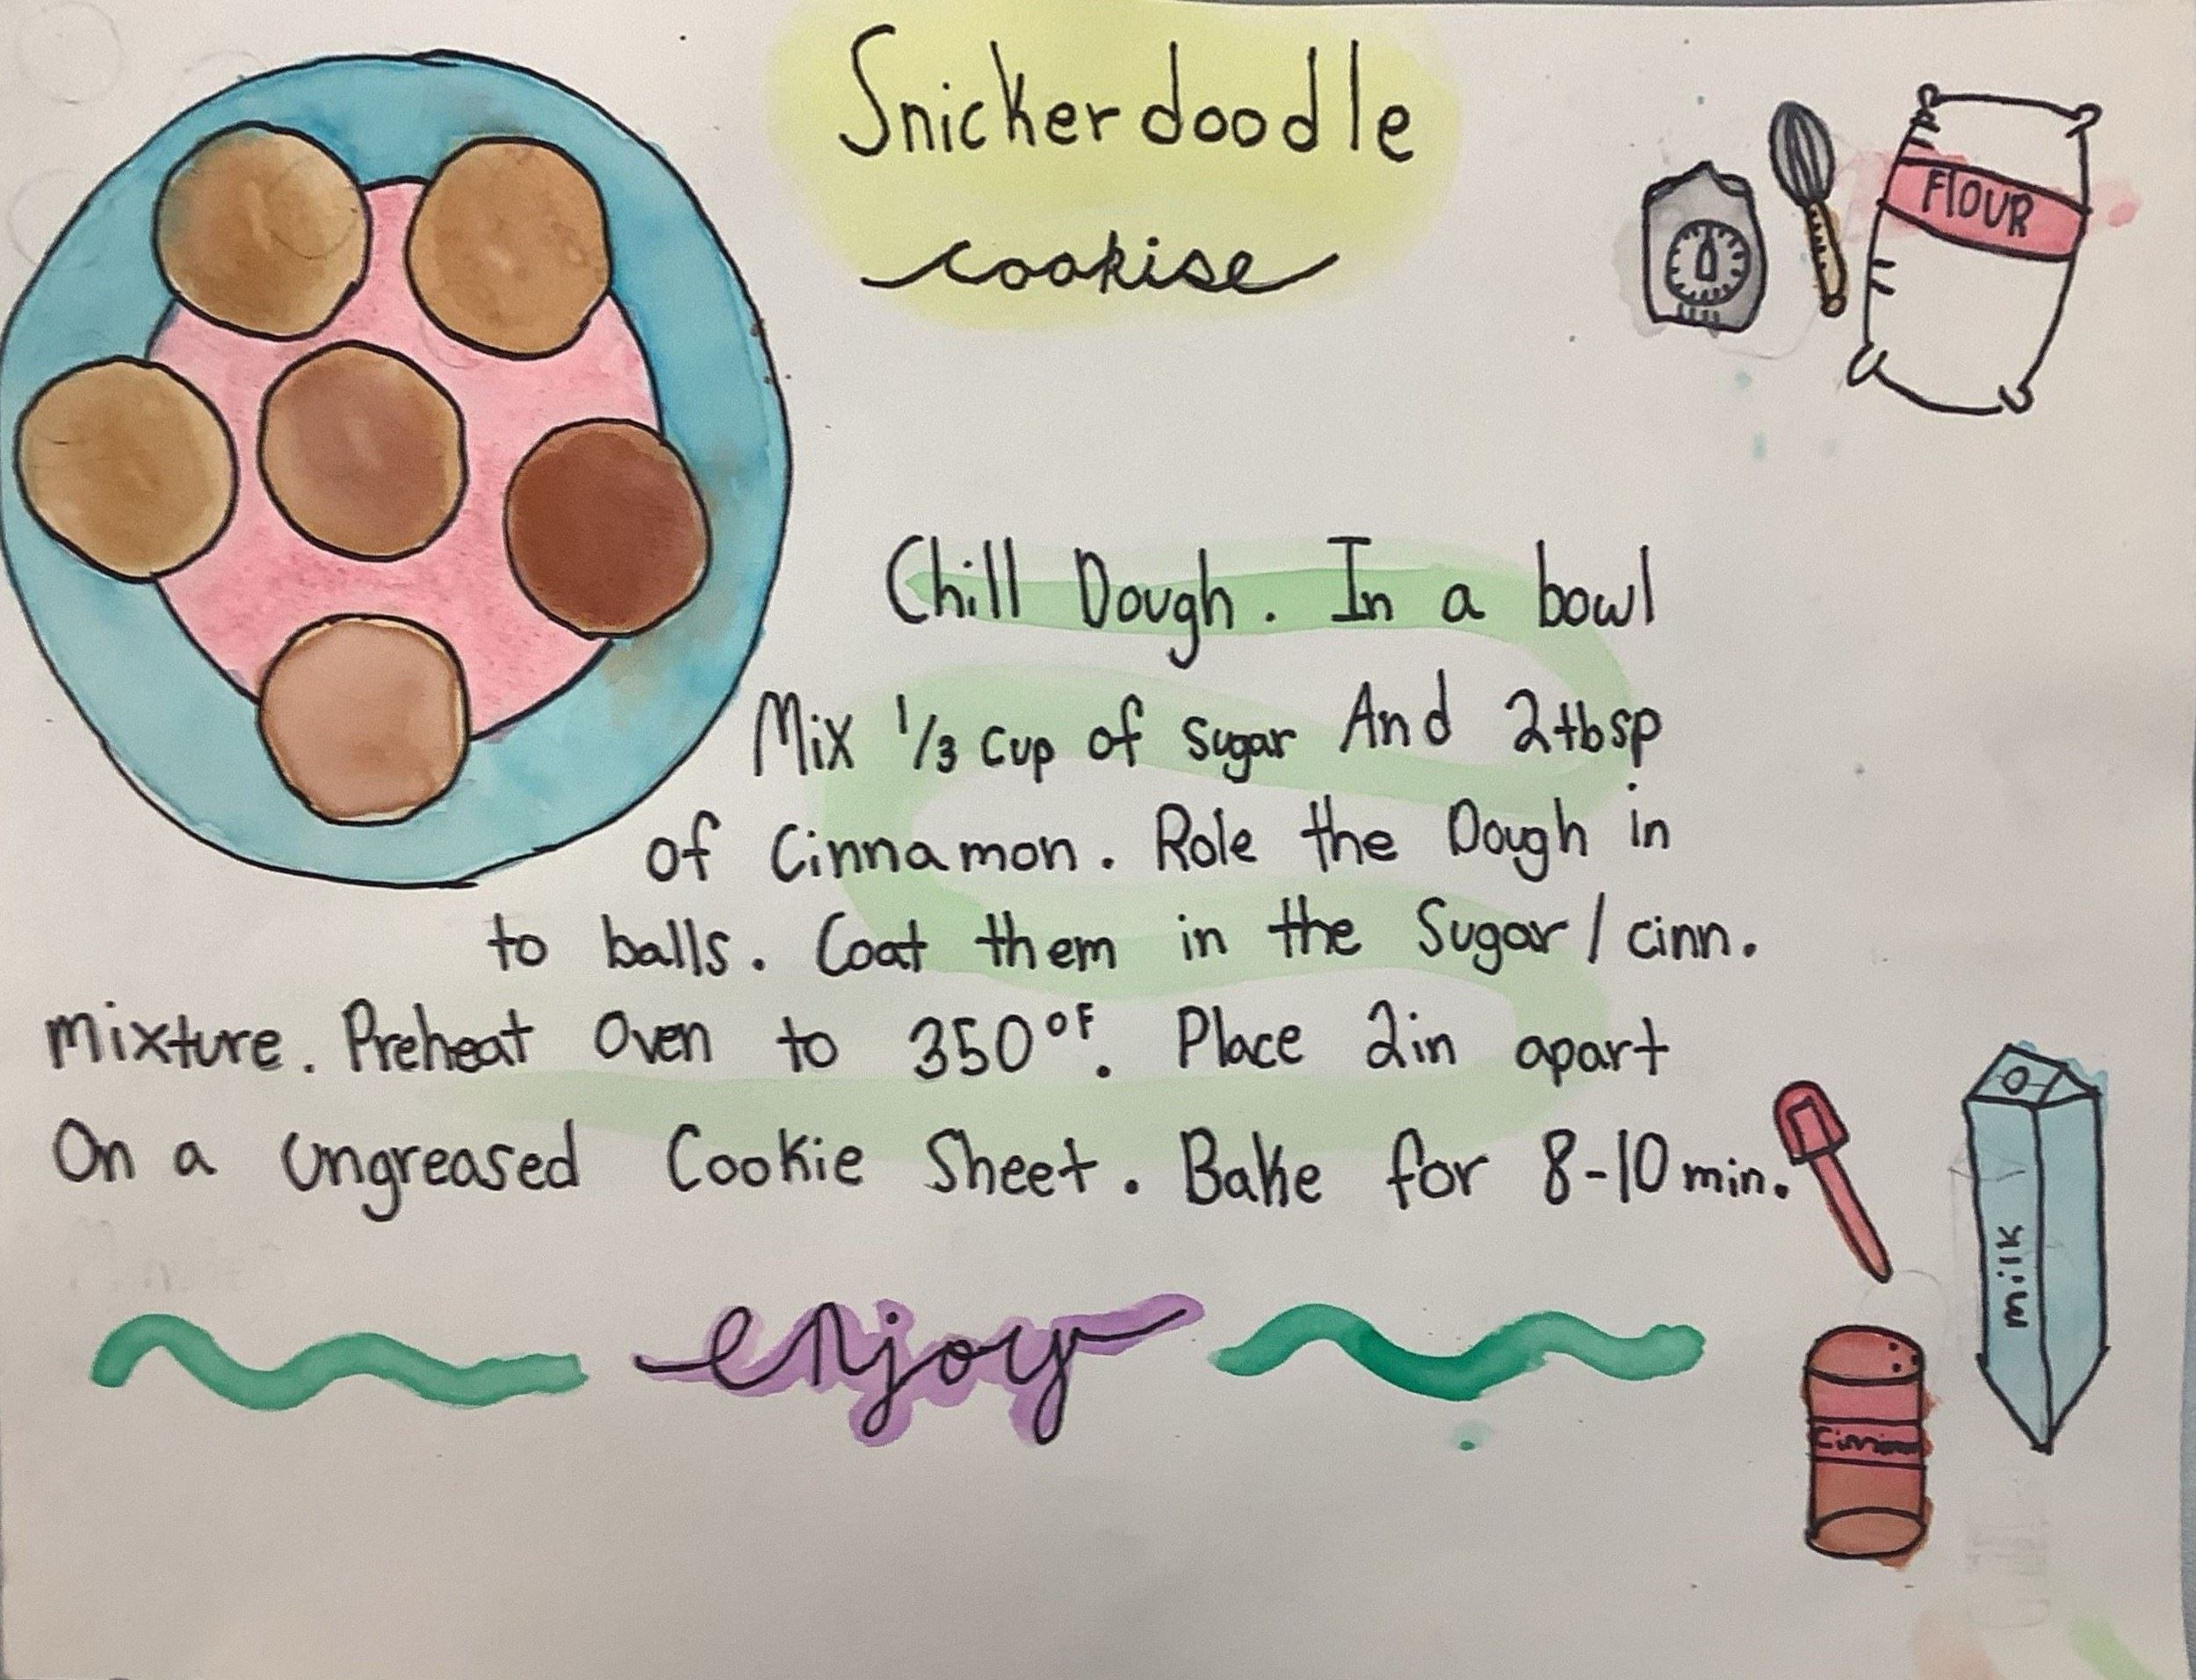 Snickerdoodle
cookise
FlOUR
Chill Dough. In a bowl
Mix 1/3 cup of sugar And 2tbsp
of Cinnamon. Role the Dough in
to balls. Coat them in the Sugar/cinn.
mixture. Preheat Oven to 350°F. Place 2in apart
On a ungreased Cookie Sheet. Bake for 8-10 min.
milk
enjoy